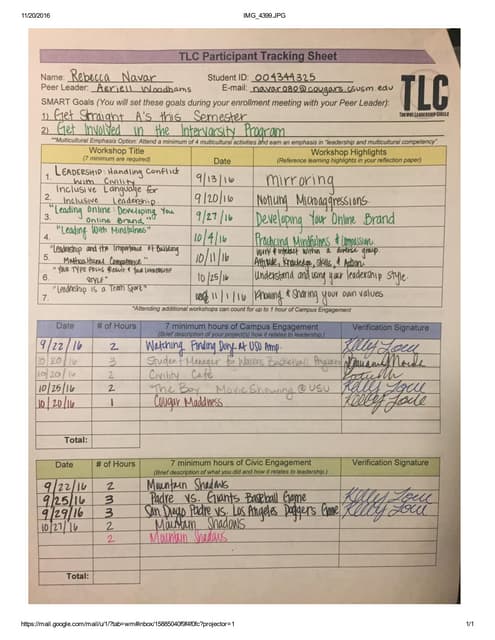 11/20/2016 IMG_4399.JPG
TLC Participant Tracking Sheet
Name: Rebecca Navar Student ID: 004344325
Peer Leader: Aeriell Woodhams E-mail: navar080@cougars.csusm.edu
SMART Goals (You will set these goals during your enrollment meeting with your Peer Leader):
TLC
THE WAY LEADERSHIP CIRCLE
1) Get Straight A's this Semester
2) Get Involved in the Intervarsity Program
**Multicultural Emphasis Option: Attend a minimum of 4 multicultural activities and earn an emphasis in "leadership and multicultural competency"
Workshop Title Date Workshop Highlights
(7 minimum are required) (Reference learning highlights in your reflection paper)
1. LEADERSHIP: Handling Conflict with Civility 9/13/16 mirroring
2. Inclusive Language for Inclusive Leadership 9/20/16 Noticing Microaggressions
3. "Leading Online: Developing You Online Brand" 9/27/16 Developing Your Online Brand
4. "Leading With Mindfulness" 10/4/16 Practicing Mindfulness & Compassion
5. "Leadership and the Importance of Building Multicultural Competence" 10/11/16 Work & interact within a diverse group. Attitude, Knowledge, Skills, & Action
6. "Your Type Focus Result & Your Leadership Style" 10/25/16 Understand and using your leadership style.
7. "Leadership is a Team Sport" 11/1/16 Knowing & Sharing your own values
*Attending additional workshops can count for up to 1 hour of Campus Engagement
Date # of Hours 7 minimum hours of Campus Engagement Verification Signature
(Brief description of your project(s) how it relates to leadership.)
9/22/16 2 Watching Finding Dory At USU Amp.
10/20/16 3 Student Manager for Womens Basketball Program
10/20/16 2 Civility Café
10/25/16 2 "The Boy" Movie Showing @ USU
10/20/16 1 Cougar Maddness
Total:
Date # of Hours 7 minimum hours of Civic Engagement Verification Signature
(Brief description of what you did and how it relates to leadership.)
9/22/16 2 Mountain Shadows
9/25/16 3 Padre vs. Giants Baseball Game
9/29/16 3 San Diego Padre vs. Los Angeles Doggers Game
10/27/16 2 Mountain Shadows
2 Mountain Shadows
Total:
https://mail.google.com/mail/u/1/?tab=wm#inbox/15885040f9f4f0fc?projector=1 1/1